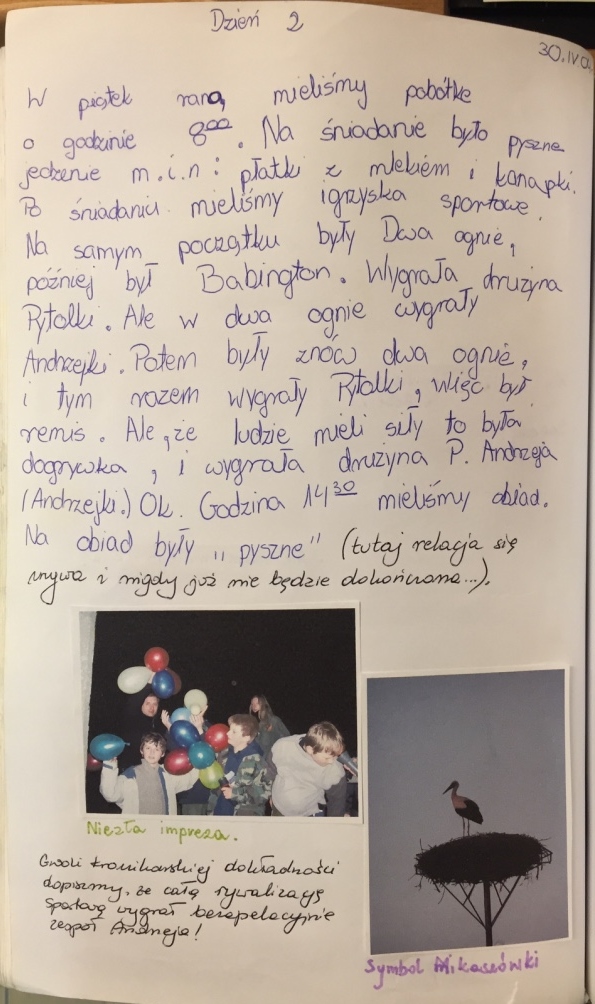 Dzień 2
30.IV.0
W piątek raną mieliśmy pobótke
o godzinie 8⁰⁰. Na śniadanie było pyszne
jedzenie m.i.n: płatki z mlekiem i kanapki.
Po śniadaniu mieliśmy igrzyska sportowe.
Na samym początku były Dwa ognie,
później był Babington. Wygrała drużyna
Rytolki. Ale w dwa ognie wygrały
Andrzejki. Potem były znów dwa ognie,
i tym razem wygrały Rytolki, więc był
remis. Ale, że ludzie mieli siły to była
dogrywka, i wygrała drużyna P. Andrzeja
(Andrzejki.) Ok. Godzina 14³⁰ mieliśmy obiad.
Na obiad były „pyszne" (tutaj relacja się
urywa i nigdy już nie będzie dokończona...).
Niezła impreza.
Gwoli kronikarskiej dokładności
dopiszmy, że całą rywalizację
sportową wygrał bezapelacyjnie
zespół Andrzeja!
Symbol Mikaszówki